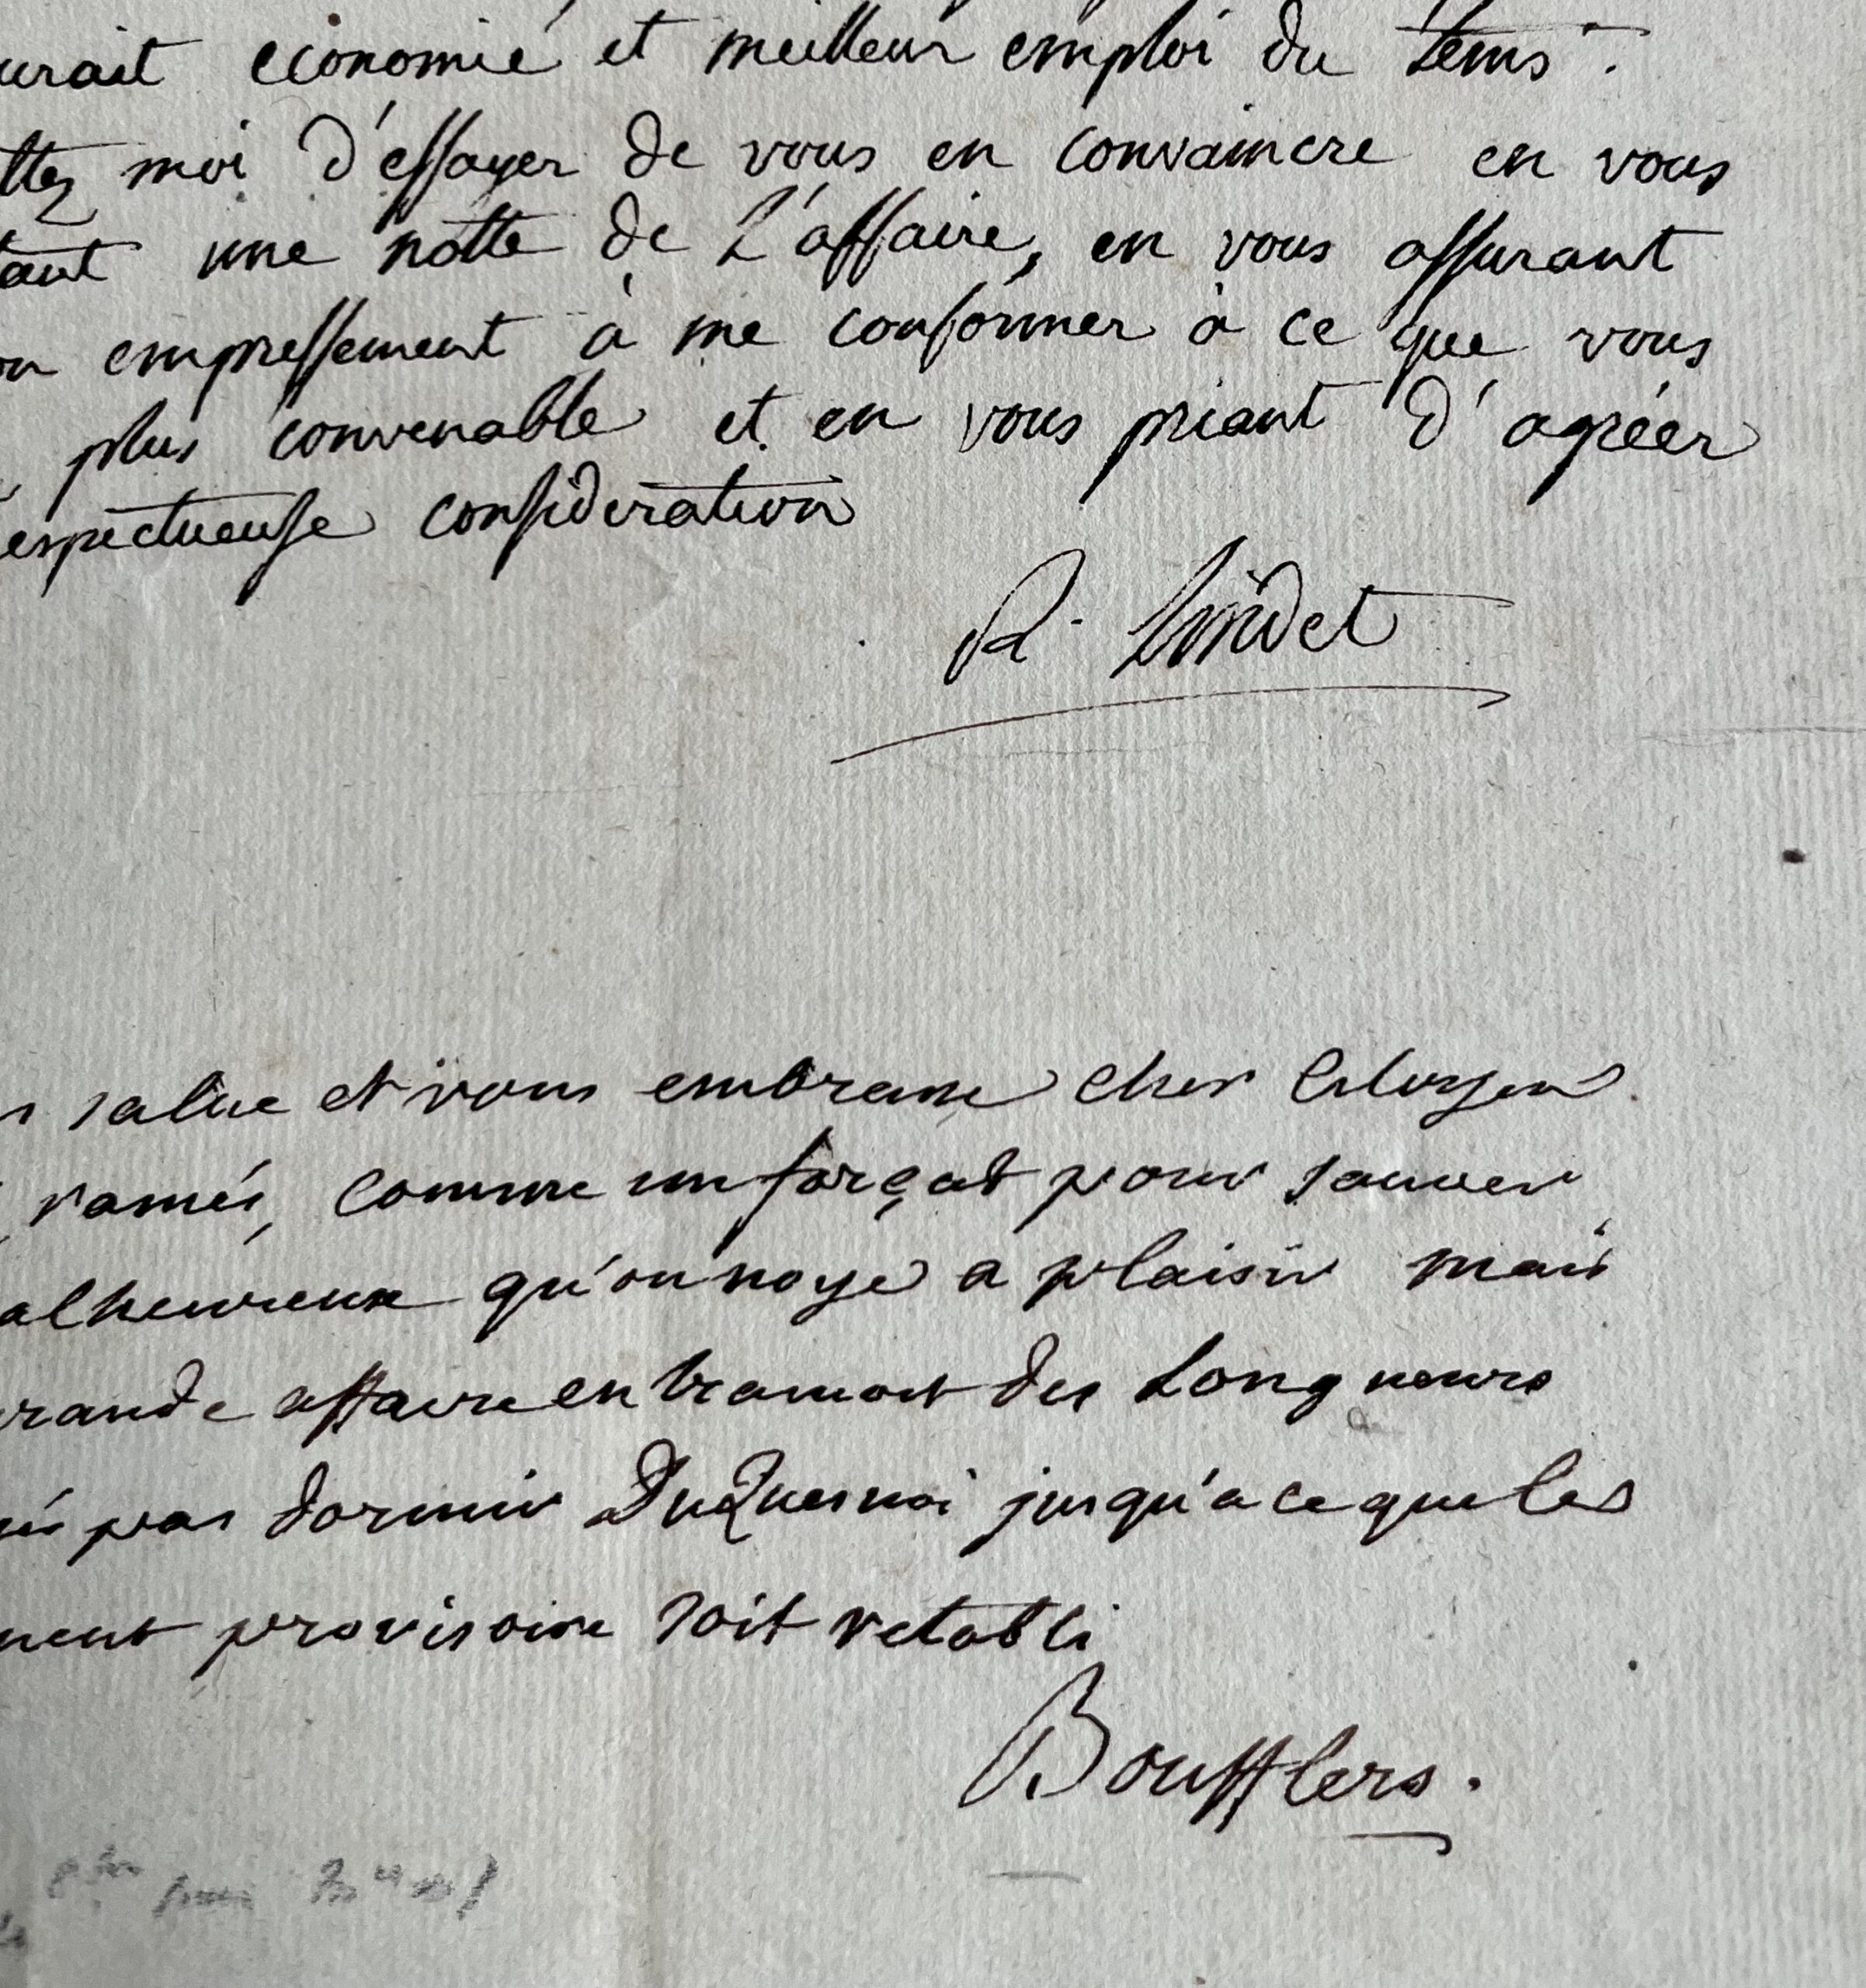 urait economie et meilleur emploi du tems.
ttez moi d'essayer de vous en convaincre en vous
tant une notte de L'affaire, en vous assurant
on empressement à me conformer à ce que vous
plus convenable et en vous priant d'agréer
espectueuse consideration
R. Lindet
salue et vous embrasse cher Citoyen.
ramés, comme un forçat pour sauver
alheureux qu'on noye a plaisir mais
rande affaire entrainant des Longueurs
pas dormir DuQuesnoi jusqu'a ce que les
ment provisoire soit retabli
Boufflers.